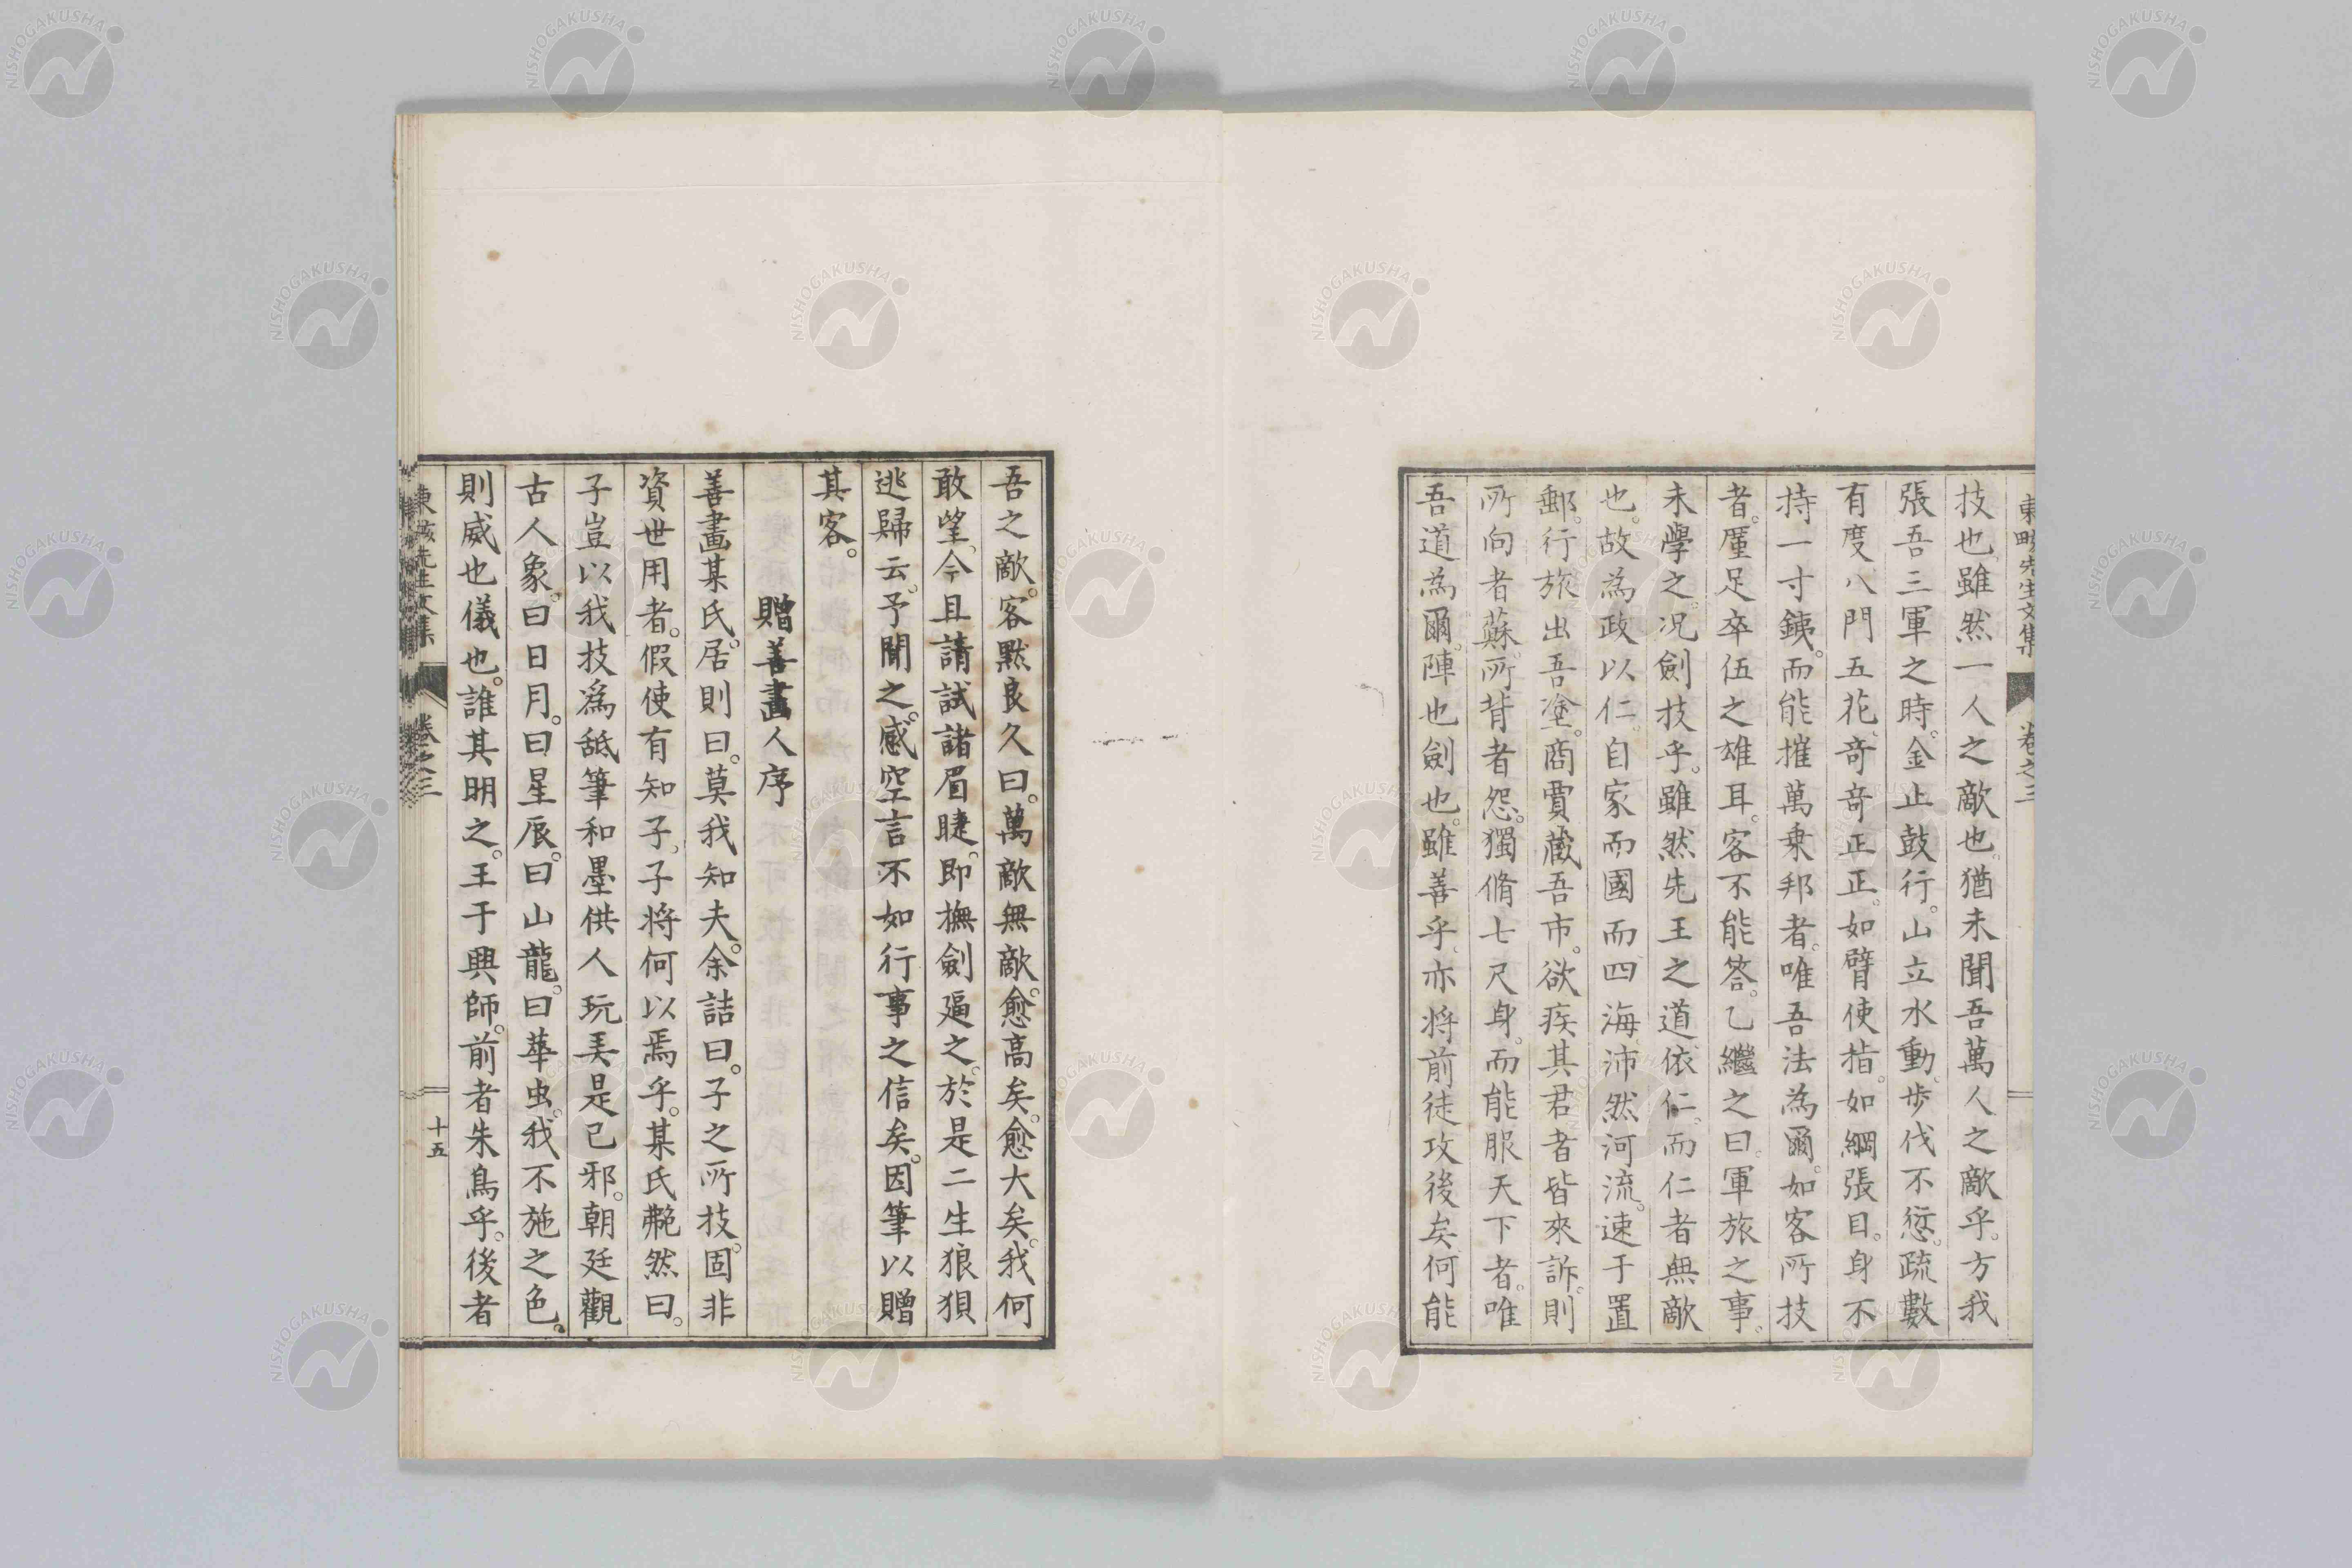 東畡先生文集 卷之三
技也雖然一人之敵也猶未聞吾萬人之敵乎。方我
張吾三軍之時。金止鼓行。山立水動、步伐不愆。疏數
有度八門五花、奇奇正正。如臂使指。如綱張目。身不
持一寸鋏。而能摧萬乘邦者。唯吾法為爾。如客所技
者。厪足卒伍之雄耳。客不能答。乙繼之曰。軍旅之事。
未學之。况劍技乎。雖然先王之道依仁。而仁者無敵
也。故為政以仁。自家而國而四海沛然河流。速于置
郵。行旅出吾塗。商賈藏吾市。欲疾其君者皆來訴。則
所向者蘇。所背者怨。獨脩七尺身。而能服天下者。唯
吾道為爾。陣也劍也。雖善乎。亦將前徒攻後矣何能
吾之敵。客默良久曰。萬敵無敵。愈高矣。愈大矣。我何
敢望。今且請試諸眉睫。即撫劍逼之。於是二生狼狽
逃歸云。予聞之。感空言不如行事之信矣。因筆以贈
其客。
贈善畫人序
善畫某氏。居則曰。莫我知夫。余詰曰。子之所技。固非
資世用者。假使有知子、子將何以焉乎。某氏艴然曰。
子豈以我技爲舐筆和墨供人玩美是已邪。朝廷觀
古人象。曰日月。曰星辰。曰山龍。曰華虫。我不施之色。
則威也儀也。誰其明之。王于興師。前者朱鳥乎。後者
東畡先生文集 卷之三 十五
NISHOGAKUSHA